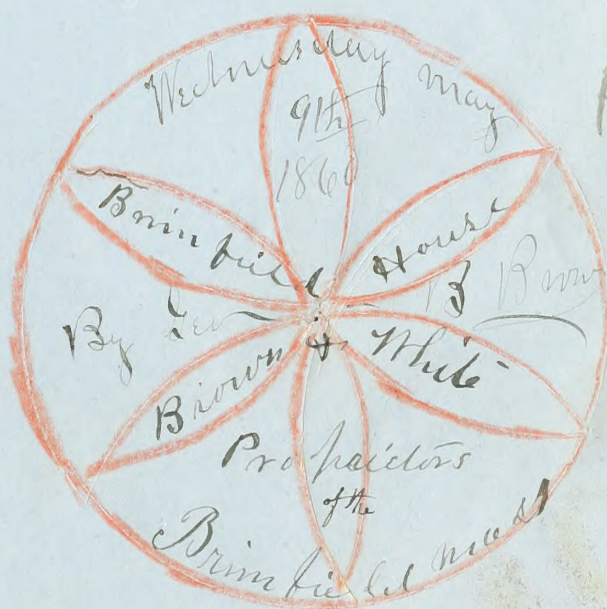 Wednesday may
9th
1860
Brimfield House
By B Brown
Brown & White
Propaietors
of the
Brimfield mass